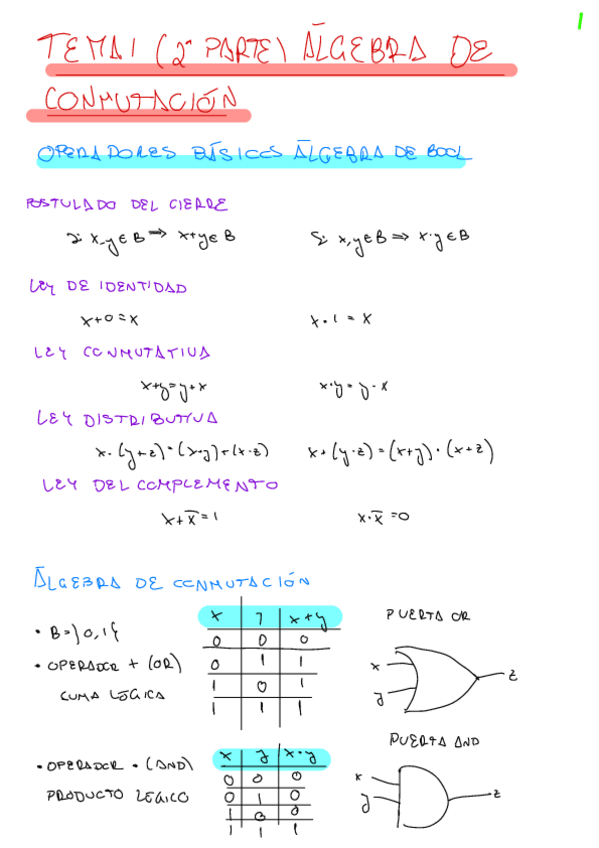 1
TEMA 1 (2ª PARTE) ÁLGEBRA DE
CONMUTACIÓN
OPERADORES BÁSICOS ÁLGEBRA DE BOOL
POSTULADO DEL CIERRE
Si x,y∈B ⟹ x+y∈B    Si x,y∈B ⟹ x·y∈B
LEY DE IDENTIDAD
x+0=x    x·1=x
LEY CONMUTATIVA
x+y=y+x    x·y=y·x
LEY DISTRIBUTIVA
x·(y+z)=(x·y)+(x·z)    x+(y·z)=(x+y)·(x+z)
LEY DEL COMPLEMENTO
x+x̅=1    x·x̅=0
ÁLGEBRA DE CONMUTACIÓN
x y x+y    PUERTA OR
• B=}0,1{    0 0 0
• OPERADOR + (OR)    0 1 1    x    z
SUMA LÓGICA    1 0 1    y
1 1 1
PUERTA AND
x y x·y
• OPERADOR · (AND)    0 0 0    x
PRODUCTO LÓGICO    0 1 0    y    z
1 0 0
1 1 1